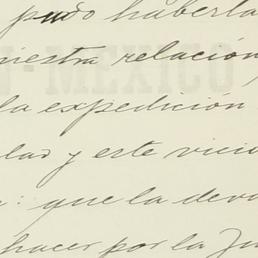 pudo haberla
uiestra relación
la expedición
lad y este vicio
: que la deva
hacer por la Ju